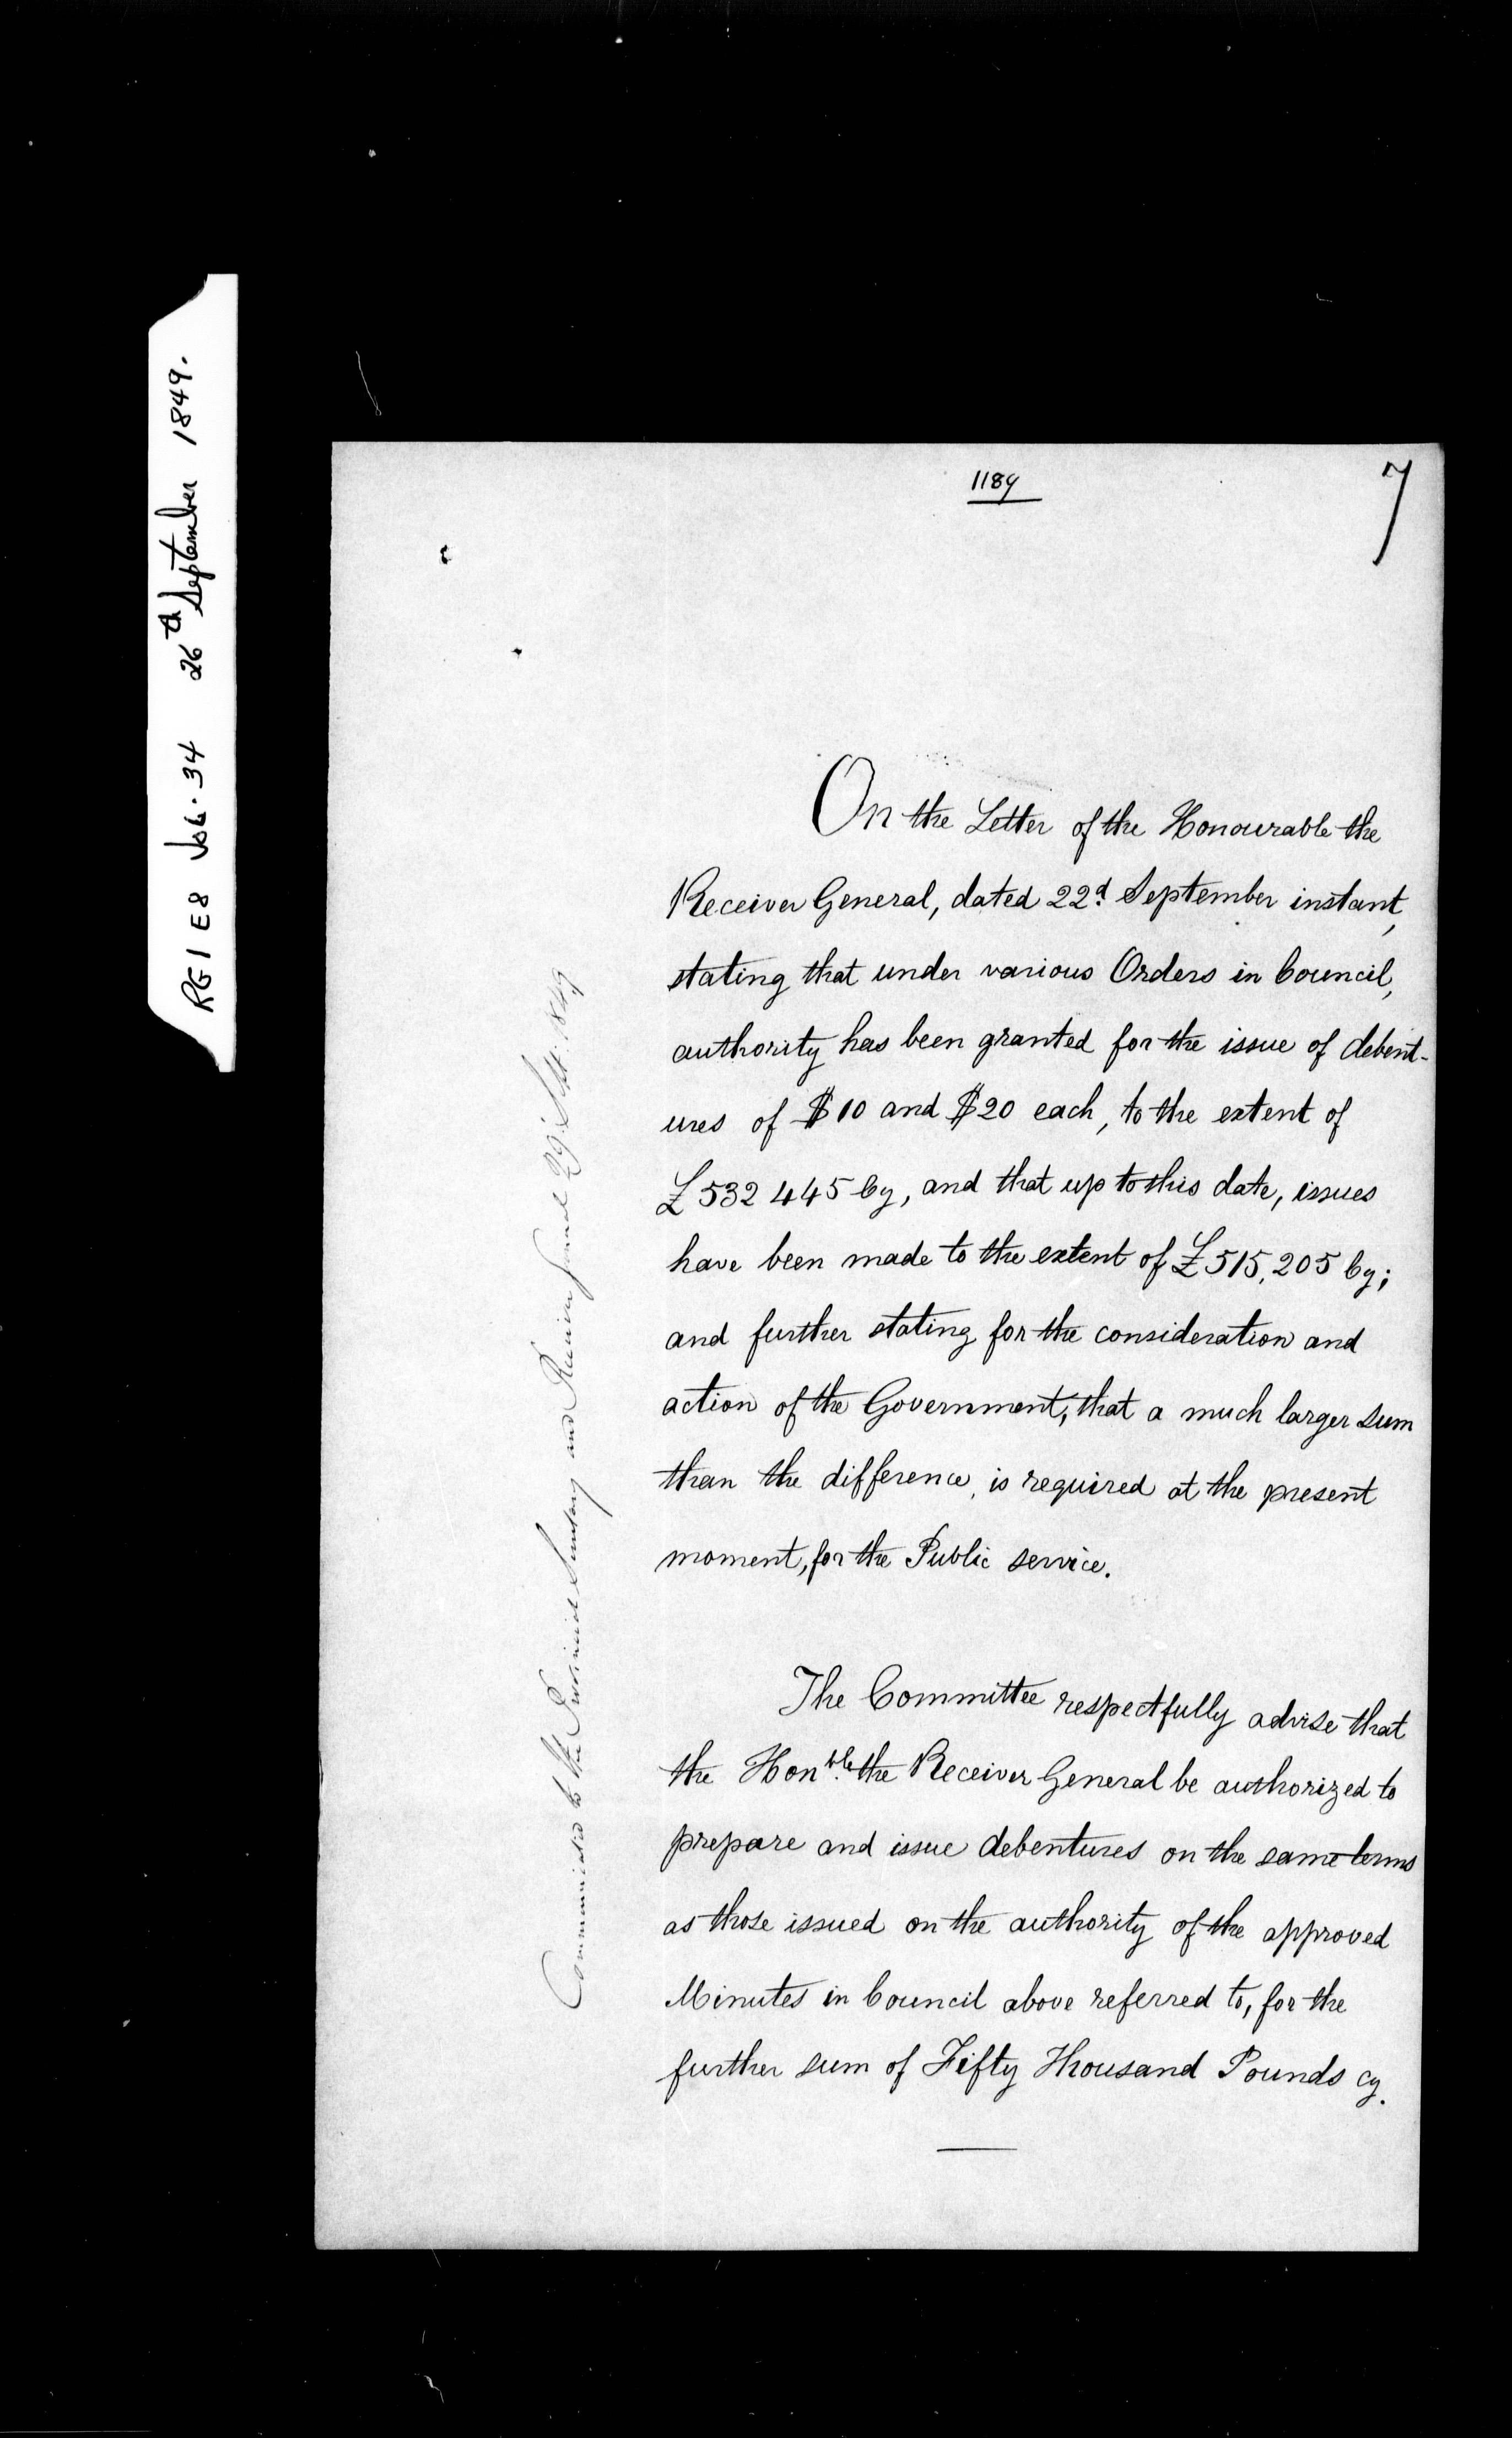 RG 1 E8 Vol. 34 26th September 1849.
1189
7
On the Letter of the Honourable the
Receiver General, dated 22d. September instant,
stating that under various Orders in Council,
authority has been granted for the issue of debent-
ures of $10 and $20 each, to the extent of
£532 445 Cy, and that up to this date, issues
have been made to the extent of £515,205 Cy;
and further stating for the consideration and
action of the Government, that a much larger sum
than the difference, is required at the present
moment, for the Public service.
The Committee respectfully advise that
the Honble. the Receiver General be authorized to
prepare and issue debentures on the same terms
as those issued on the authority of the approved
Minutes in Council above referred to, for the
further sum of Fifty Thousand Pounds cy.
Communicated to the Provincial Secretary and Receiver General 29 Sept. 1849